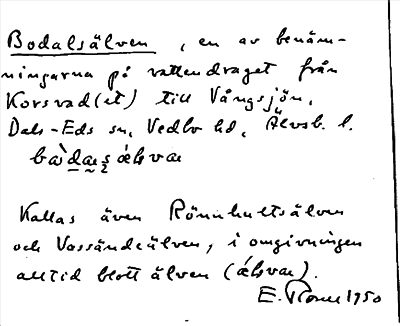 Bodalsälven, en av benäm-
ningarna på vattendraget från
Korsvad(et) till Vångsjön,
Dals-Eds sn, Vedbo hd, Älvsb. l.
Kallas även Rönnhultsälven
och Vassändeälven, i omgivningen
alltid blott älven (
E. 1950